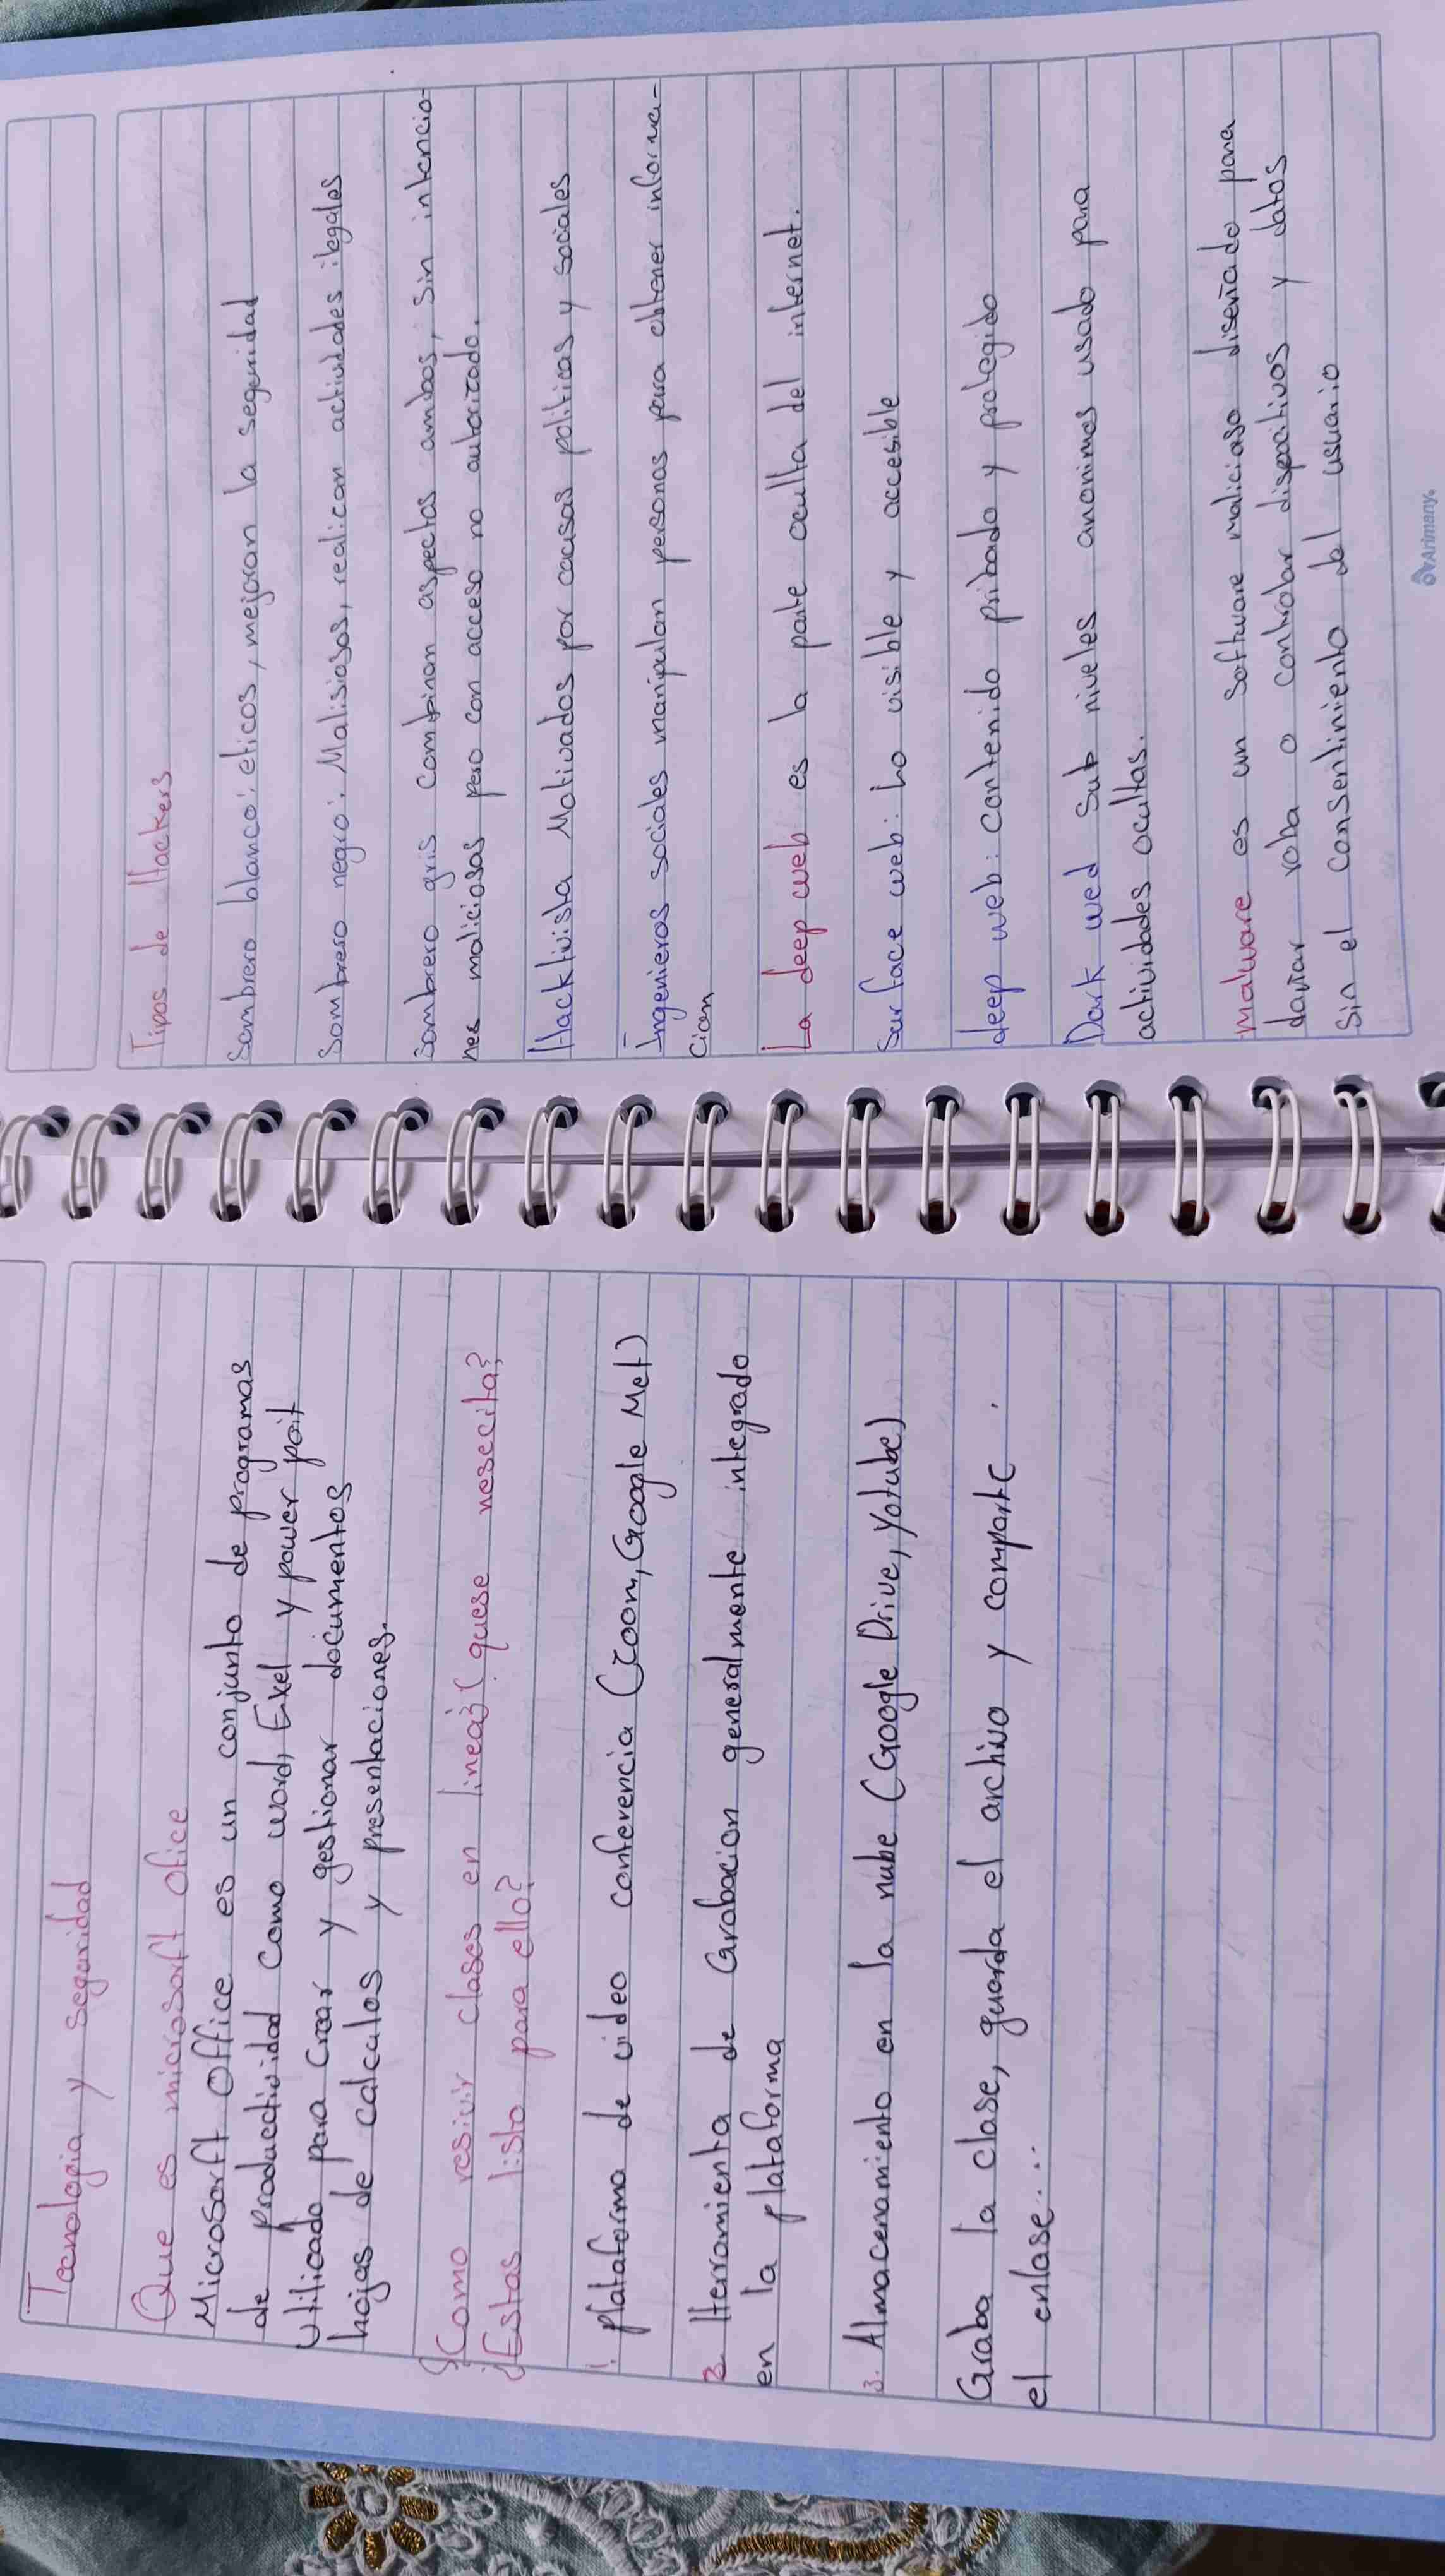 Tecnologia y seguridad
Que es microsorft Ofice
Microsorft Office es un conjunto de programas
de productividad como word, Exel y power poit
Utilicado para Crear y gestionar documentos
hojas de calculos y presentaciones.
¿Como resivir clases en linea? ¿quese nesecita?
¿Estas listo para ello?
1. plataforma de video conferencia (Zoom, Google Met)
2. Herramienta de Grabacion generalmente integrado
en la plataforma
3. Almacenamiento en la nube (Google Drive, Yotube)
Graba la clase, guarda el archivo y comparte
el enlase...
Tipos de Hackers
Sombrero blanco: eticos, mejoran la seguridad
Sombrero negro: Malisiosos, realican actividades ilegales
Sombrero gris combinan aspectos ambos, sin intencio-
nes maliciosas pero con acceso no autoricado.
Hacktivista Motivados por causas politicas y sociales
Ingenieros sociales manipulan personas para obtener informa-
cion
La deep web es la parte oculta del internet.
Surface web: Lo visible y accesible
deep web: contenido pribado y prolegido
Dark wed Sub niveles anonimos usado para
actividades ocultas.
malware es un Software malicioso diseñado para
dañar roba o controlar dispocitivos y datos
Sin el consentiniento del usuario
Arimany